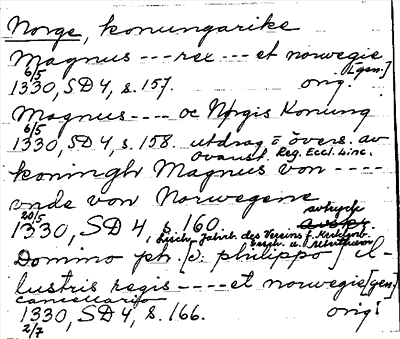 Norge, konungarike
Magnus --- rex --- et norwegie
[gen.]
6/5
1330, SD 4, s. 157. orig.
Magnus ---- oc Nørgis Konung
6/5
1330, SD 4, s. 158. utdrag o övers. av
ovanst. Reg. Eccl. Linc.
koningh Magnus von ----
vnde von Norwegene
20/5 avtryck
1330, SD 4, s. 160.
Lisch: Jahrb. des Vereins f. Mecklenb.
Gesch. u.
Domino ph. [ɔ: philippo] il-
lustris regis ---- et norwegie [gen.]
cancellario
1330, SD 4, s. 166. orig.
2/7